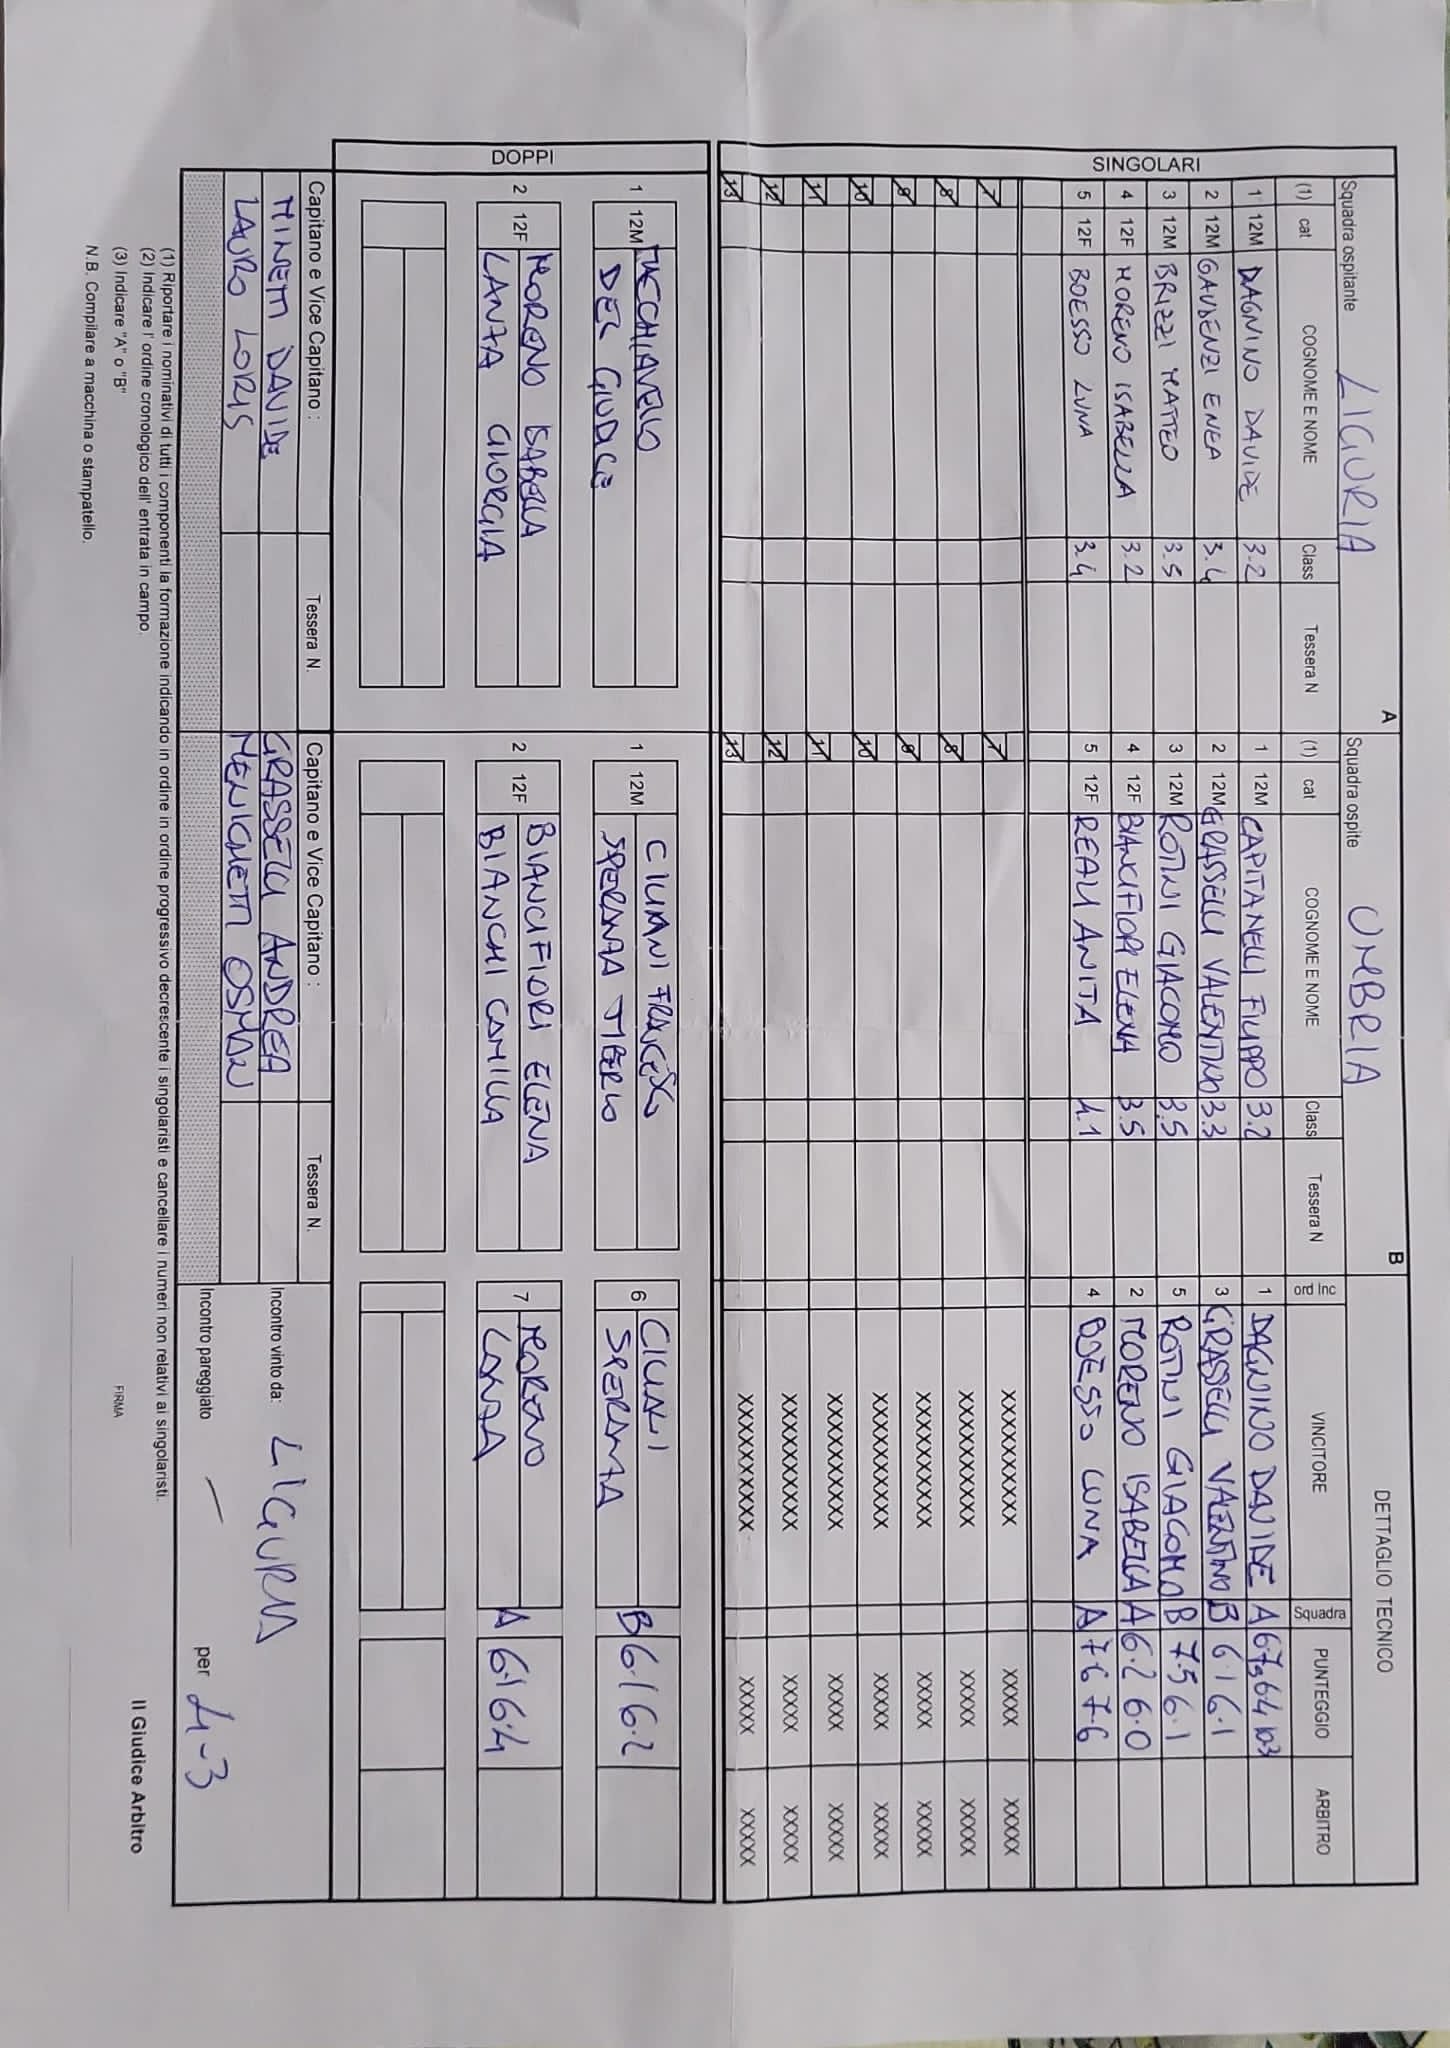 Squadra ospitante LIGURIA A Squadra ospite UMBRIA B DETTAGLIO TECNICO
SINGOLARI
(1) cat COGNOME E NOME Class Tessera N (1) cat COGNOME E NOME Class Tessera N ord Inc VINCITORE Squadra PUNTEGGIO ARBITRO
1 12M DAGNINO DAVIDE 3.2 1 12M CAPITANELLI FILIPPO 3.2 1 DAGNINO DAVIDE A 6.7 6.4 10.3
2 12M GAUDENZI ENEA 3.4 2 12M GRASSELLI VALENTINO 3.3 3 GRASSELLI VALENTINO B 6.1 6.1
3 12M BRIZZI MATTEO 3.5 3 12M ROTINI GIACOMO 3.5 5 ROTINI GIACOMO B 7.5 6.1
4 12F MORENO ISABELLA 3.2 4 12F BIANCIFIORI ELENA 3.5 2 MORENO ISABELLA A 6.2 6.0
5 12F BOESSO LUNA 3.4 5 12F REALI ANITA 4.1 4 BOESSO LUNA A 7.6 7.6
7 7 XXXXXXXXXX XXXXX XXXXX
8 8 XXXXXXXXXX XXXXX XXXXX
9 9 XXXXXXXXXX XXXXX XXXXX
10 10 XXXXXXXXXX XXXXX XXXXX
11 11 XXXXXXXXXX XXXXX XXXXX
12 12 XXXXXXXXXX XXXXX XXXXX
13 13 XXXXXXXXXX XXXXX XXXXX
DOPPI
1 12M MECCHIAVELLO 1 12M CIUCANI FRANCESCO 6 B 6.1 6.2
DEL GIUDICE SPERANZA TIBERIO SPERANZA
2 12F MORENO ISABELLA 2 12F BIANCIFIORI ELENA 7 MORENO A 6.1 6.4
LANZA GIORGIA BIANCHI CAMILLA LANZA
Capitano e Vice Capitano : Tessera N. Capitano e Vice Capitano : Tessera N.
MINETTI DAVIDE GRASSELLI ANDREA Incontro vinto da: LIGURIA
LAURO LORIS MENICHETTI OSMAN
Incontro pareggiato — per 4-3
(1) Riportare i nominativi di tutti i componenti la formazione indicando in ordine in ordine progressivo decrescente i singolaristi e cancellare i numeri non relativi ai singolaristi.
(2) Indicare l' ordine cronologico dell' entrata in campo.
(3) Indicare "A" o "B"
N.B. Compilare a macchina o stampatello.
Il Giudice Arbitro
FIRMA